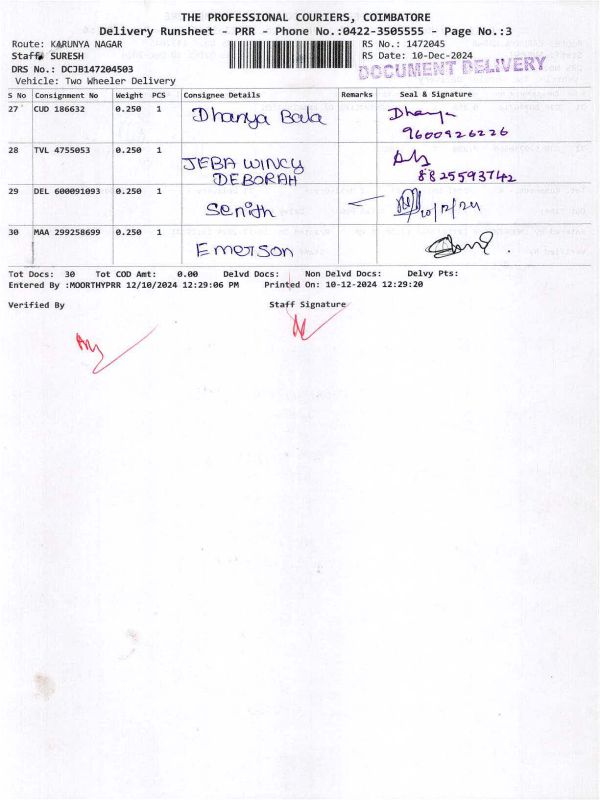 THE PROFESSIONAL COURIERS, COIMBATORE
Delivery Runsheet - PRR - Phone No.:0422-3505555 - Page No.:3
Route: KARUNYA NAGAR RS No.: 1472045
Staff: SURESH RS Date: 10-Dec-2024
DRS No.: DCJB147204503 DOCUMENT DELIVERY
Vehicle: Two Wheeler Delivery
S No Consignment No Weight PCS Consignee Details Remarks Seal & Signature
27 CUD 186632 0.250 1 Dhanya Bala Dhanya
9600926226
28 TVL 4755053 0.250 1 JEBA WINCY
DEBORAH 8825593742
29 DEL 600091093 0.250 1 Senith 10/12/24
30 MAA 299258699 0.250 1 Emerson
Tot Docs: 30 Tot COD Amt: 0.00 Delvd Docs: Non Delvd Docs: Delvy Pts:
Entered By :MOORTHYPRR 12/10/2024 12:29:06 PM Printed On: 10-12-2024 12:29:20
Verified By Staff Signature